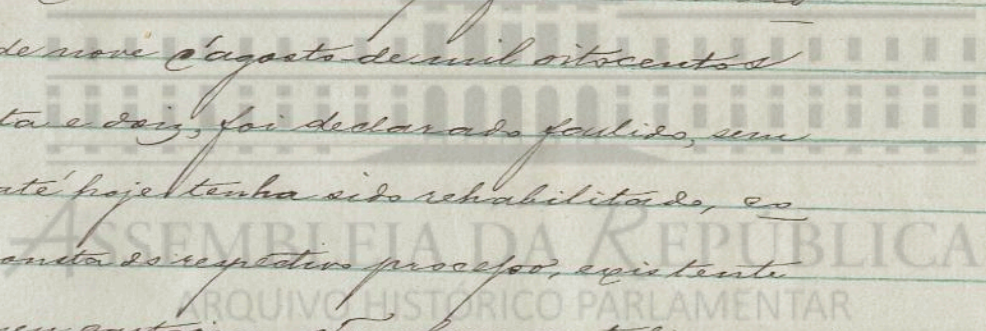 de nove d'agosto de mil oitocentos
ta e dois, foi declarado fallido, sem
até hoje tenha sido rehabilitado, co
onsta do respectivo processo, existente
ASSEMBLEIA DA REPÚBLICA
ARQUIVO HISTÓRICO PARLAMENTAR